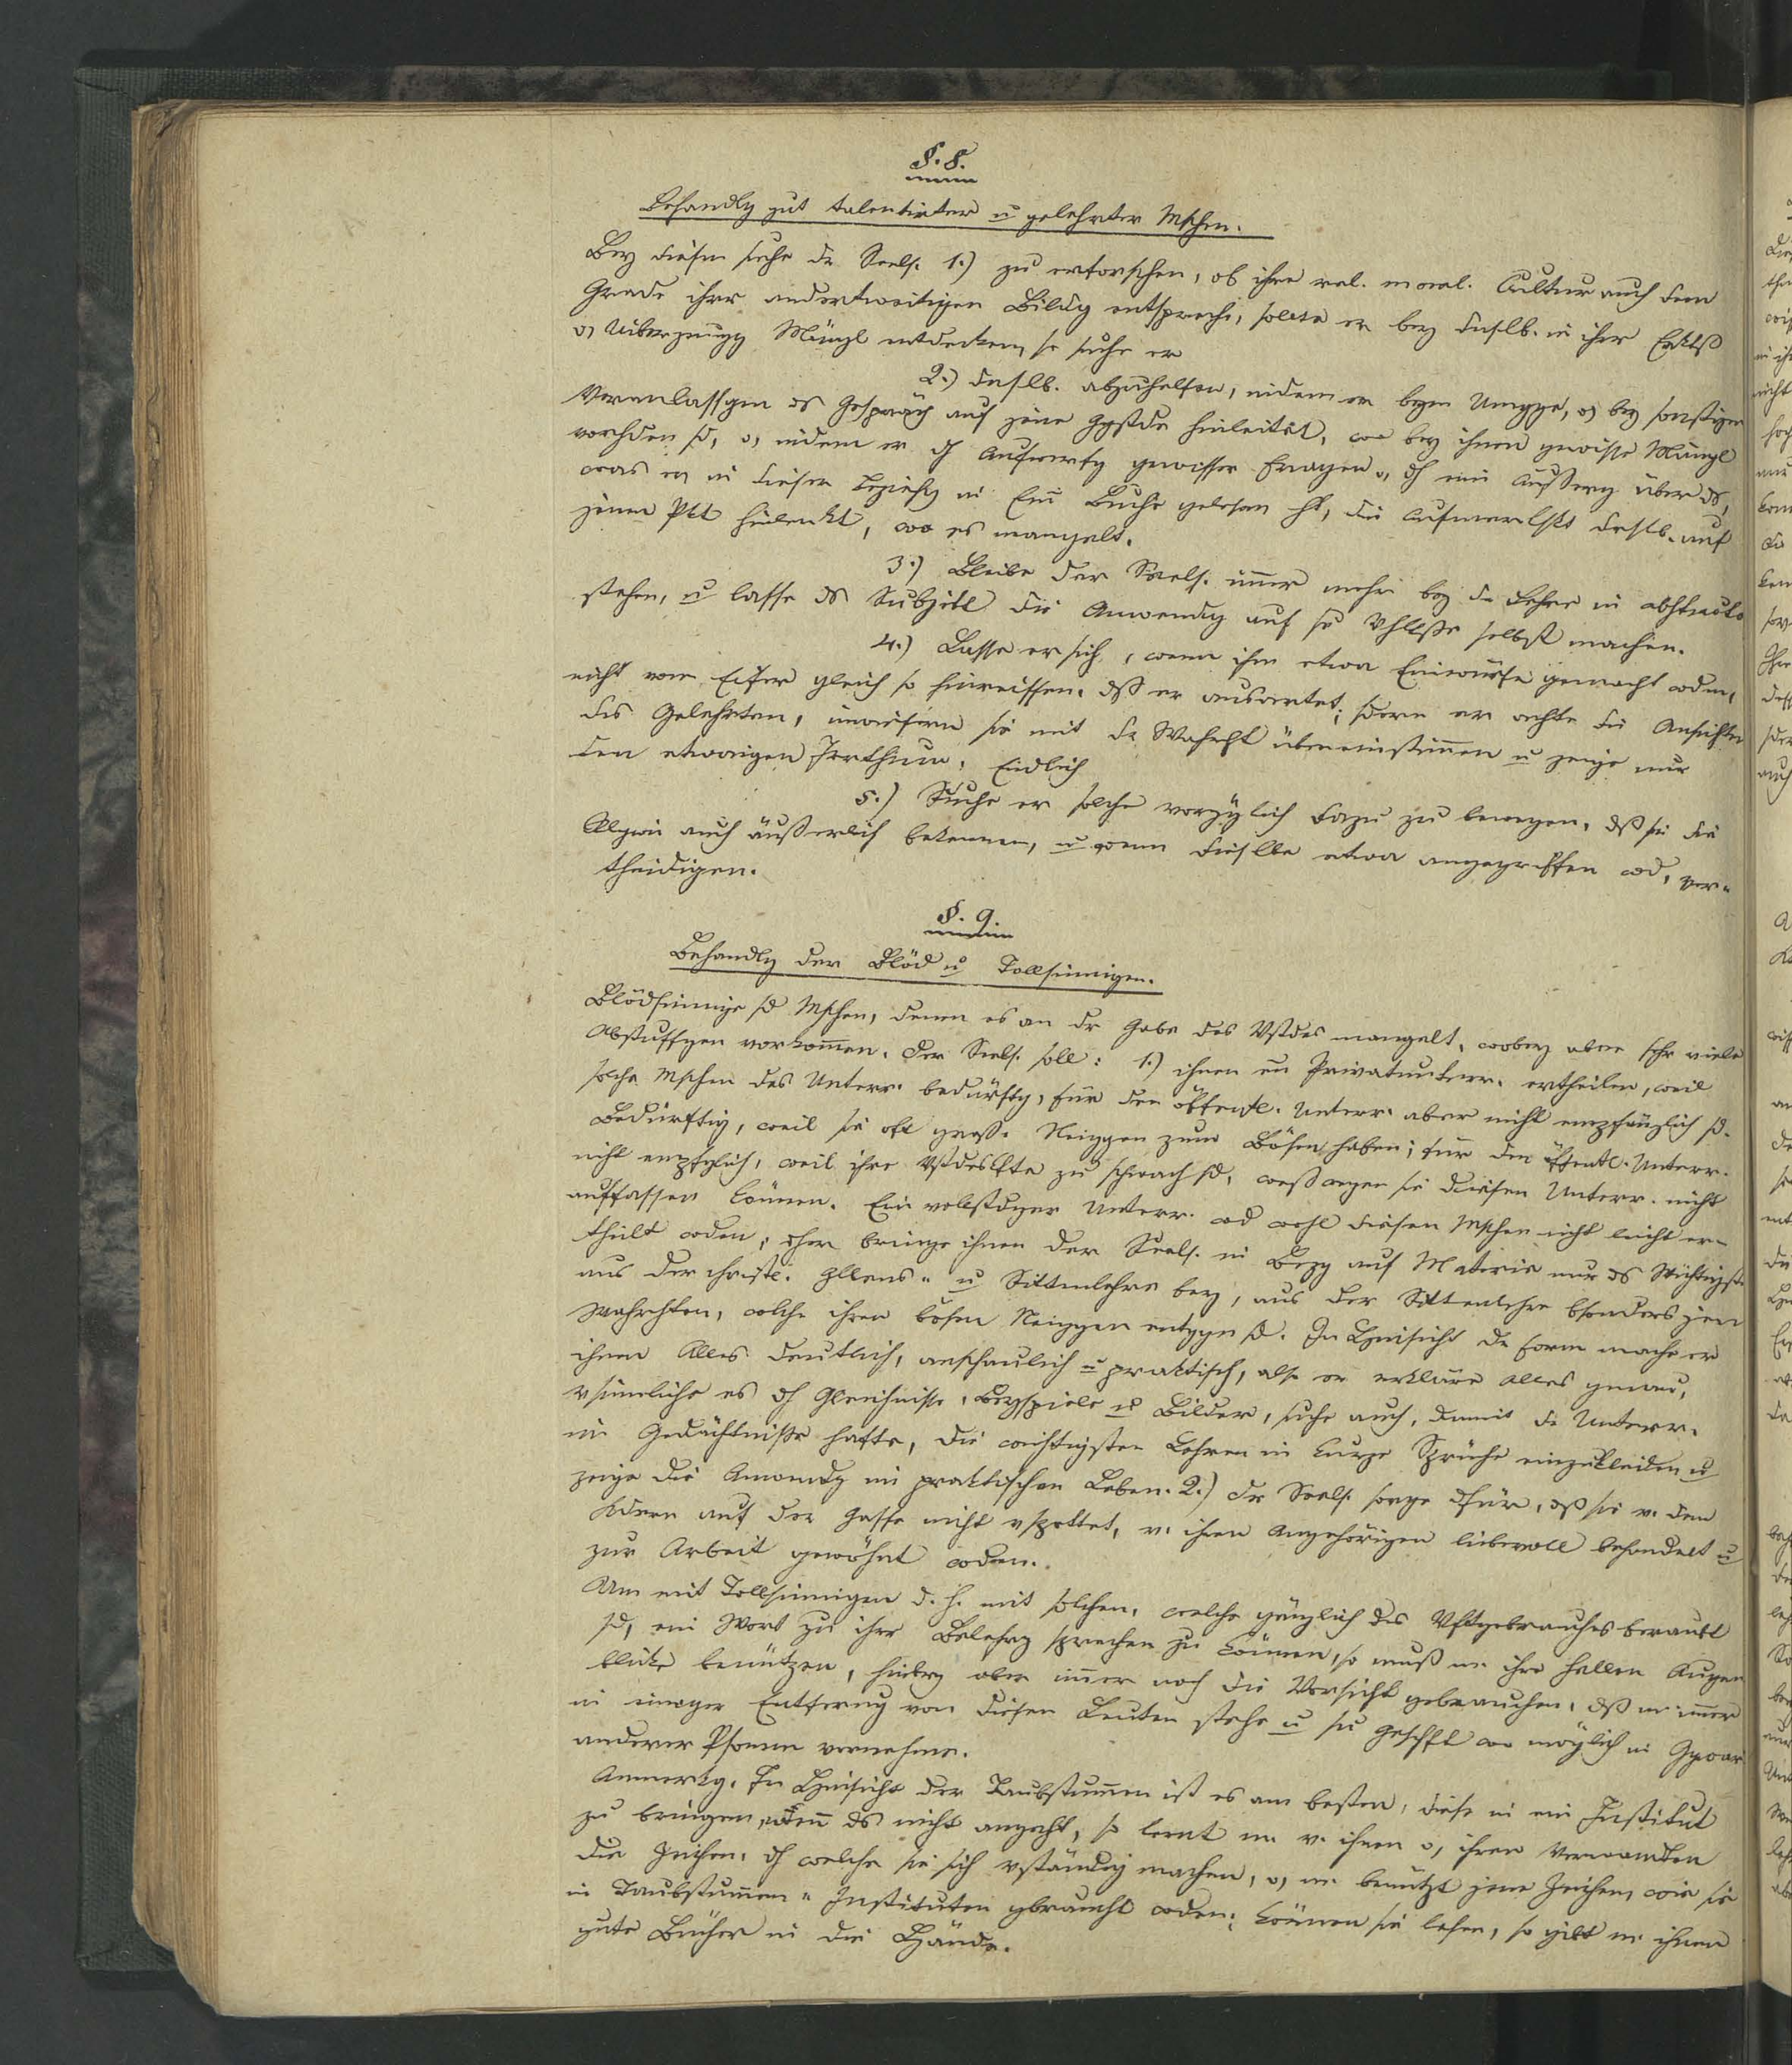 §. 8.
Behandlg gut talentirter u gelehrter Mschen.
Bey diesen suche dr Seels. 1.) zu erforschen, ob ihre rel. moral. Cultur auch dem
Grade ihrer anderweitigen Bildg entspreche, sollte er bey denslb. in ihrer
Mängl entdecken, so suche er
2.) denslb. abzuhelfen, indem er beym Umgge, o, bey sonstigen
Veranlassgen ds Gespräch auf jene Ggstde hinleitet, wo bey ihnen gewisse Mängl
vorhden sd, o, indem er dh Aufwerfg gewisser Fragen o, dh eine Äußerg über ds,
was er in dieser Beziehg in Buche gelesen ht, die Aufmerkskt desslb. auf
jenen Pkt hinlenkt, wo es mangelt.
3.) Bleibe der Seels. imer mehr bey dr Lehre in abstracto
stehen, u lasse ds Subjekt die Anwendg auf se Vhltße selbst machen.
4.) Lasse er sich, wenn ihm etwa Einwürfe gemacht wdn,
nicht vom Eifer gleich so hinreissen, dß er ausartet; sdern er achte die Ansichten
des Gelehrten, inwiefern sie mit dr Wahrht übereinstimen u zeige nur
den etwaigen Irrthum. Endlich
5.) Suche er solche vorzüglich dazu zu bewegen, dß sie die
Rlgion auch äußerlich bekennen, u wenn dieslbe etwa angegriffen wd, ver-
theidigen.
§. 9.
Behandlg der Blöd u Tollsinnigen.
Blödsinnige sd Mschen, denen es an dr Gabe des Vstdes mangelt, wobey aber sehr viele
Abstuffgen vorkomen. Der Seels. soll: 1.) ihnen en Privatunterr. ertheilen, weil
solche Mschen des Unterr. bedürftg, für den öffentl. Unterr. aber nicht empfänglich sd.
Bedürftig, weil sie oft große Neiggen zum Bösen haben; für den öffentl. Unterr.
nicht empfglich, weil ihre Vstdeskfte zu schwach sd, weßwegen sie diesen Unterr. nicht
auffassen können. Ein vollstdger Unterr. wd wohl diesen Mschen nicht leicht er-
theilt wden; eher bringe ihnen der Seels. in Bezg auf Materie nur ds Wichtigste
aus der christl. Gllens- u Sittenlehre bey, aus der Sittenlehre bsonders jene
Wahrhten, welche ihren bösen Neiggen entggn sd. In Hinsicht dr Form mache er
ihnen Alles deutlich, anschaulich u praktisch, also er erkläre alles genau,
vsinnliche es dh Gleichnisse, Beyspiele u Bilder, suche auch, damit dr Unterr.
im Gedächtnisse hafte, die wichtigsten Lehren in kurze Sprüche einzukleiden u
zeige die Anwendg im praktischen Leben. 2.) Dr Seels. sorge dfür, dß sie v. den
Kdern auf der Gasse nicht vspottet, v. ihren Angehörigen liebevoll behandelt u
zur Arbeit gewöhnt wden.
Um mit Tollsinnigen d. h. mit solchen, welche gänzlich des Vftgebrauches beraubt
sd, ein Wort zu ihrer Belehrg sprechen zu können, so muß m. ihre hellen Augen
blicke benützen, hiebey aber imer noch die Vorsicht gebrauchen, dß m. imer
in einiger Entferng von diesen Leuten stehe u sein Geschft wo möglich in Ggwar
anderer Psonen vornehme.
Anmerkg. In Hinsicht der Taubstumen ist es am besten, diese in ein Institut
zu bringen, wenn ds nicht angeht, so lernt m. v. ihnen o, ihren Verwandten
die Zeichen, dh welche sie sich vständig machen, o, m. benützt jene Zeichen, wie sie
in Taubstumen-Instituten gbraucht wden; können sie lesen, so gibt m. ihnen
gute Bücher in die Hände.